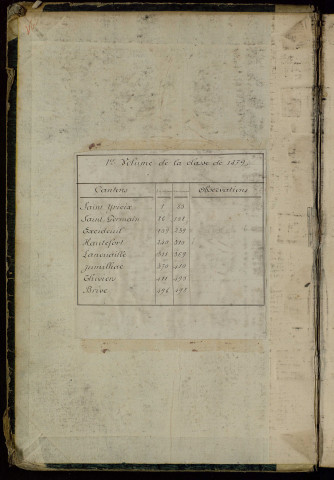 1er Volume de la classe de 1879
Cantons Observations
Saint Yrieix 1
Saint Germain
Excideuil 239
Hautefort 240 310
Lanouaille 311 369
Jumilhac 370 410
Thiviers 411 495
Brive 496 497